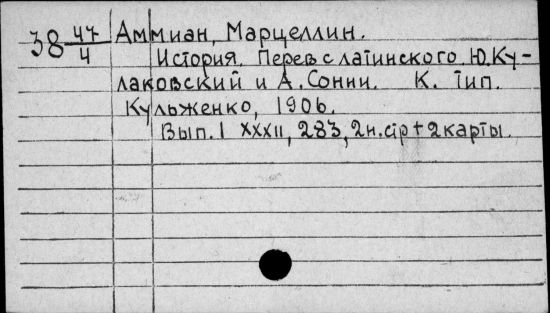 38 47/4 Аммиан, Марцеллин.
История. Перев с латинского Ю.Ку-
лаковский и А. Сонни. К. Тип.
Кульженко, 1906.
Вып. I XXXII, 283, 2н.стр + 2карты.